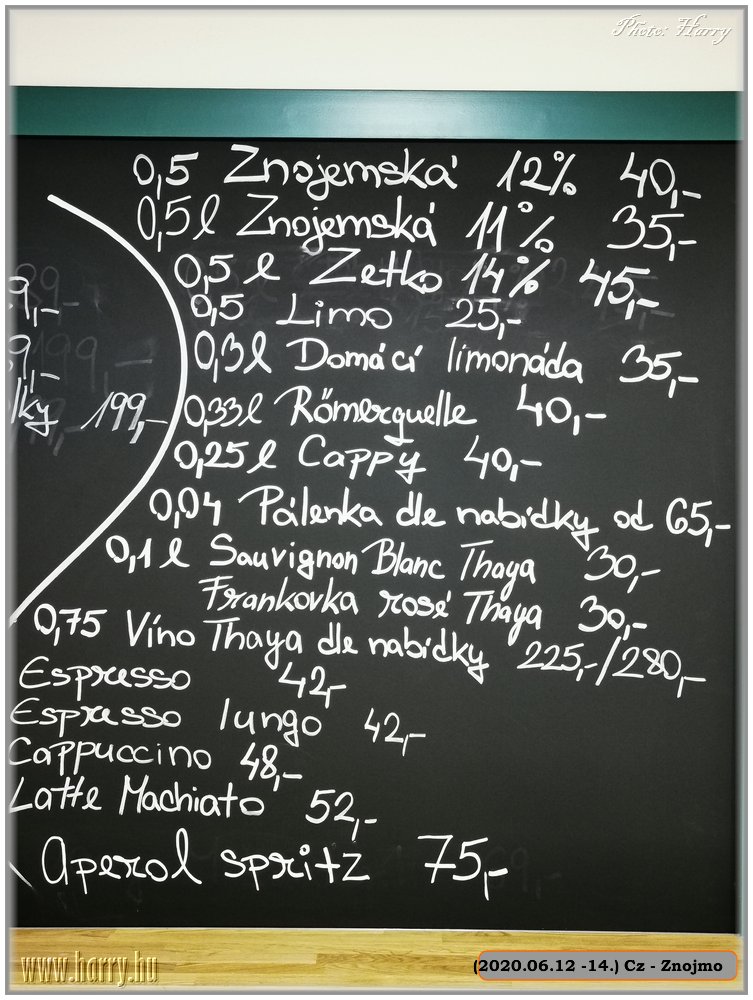 Photo: Harry
0,5 Znojemská 12% 40,-
0,5 l Znojemská 11% 35,-
0,5 l Zetko 14% 45,-
0,5 Limo 25,-
0,3 l Domácí limonáda 35,-
199,- 0,33 l Römerquelle 40,-
0,25 l Cappy 40,-
0,04 Pálenka dle nabídky od 65,-
0,1 l Sauvignon Blanc Thaya 30,-
Frankovka rosé Thaya 30,-
0,75 Víno Thaya dle nabídky 225,-/280,-
Espresso 42,-
Espresso lungo 42,-
Cappuccino 48,-
Latte Machiato 52,-
Aperol spritz 75,-
www.harry.hu
(2020.06.12 -14.) Cz - Znojmo